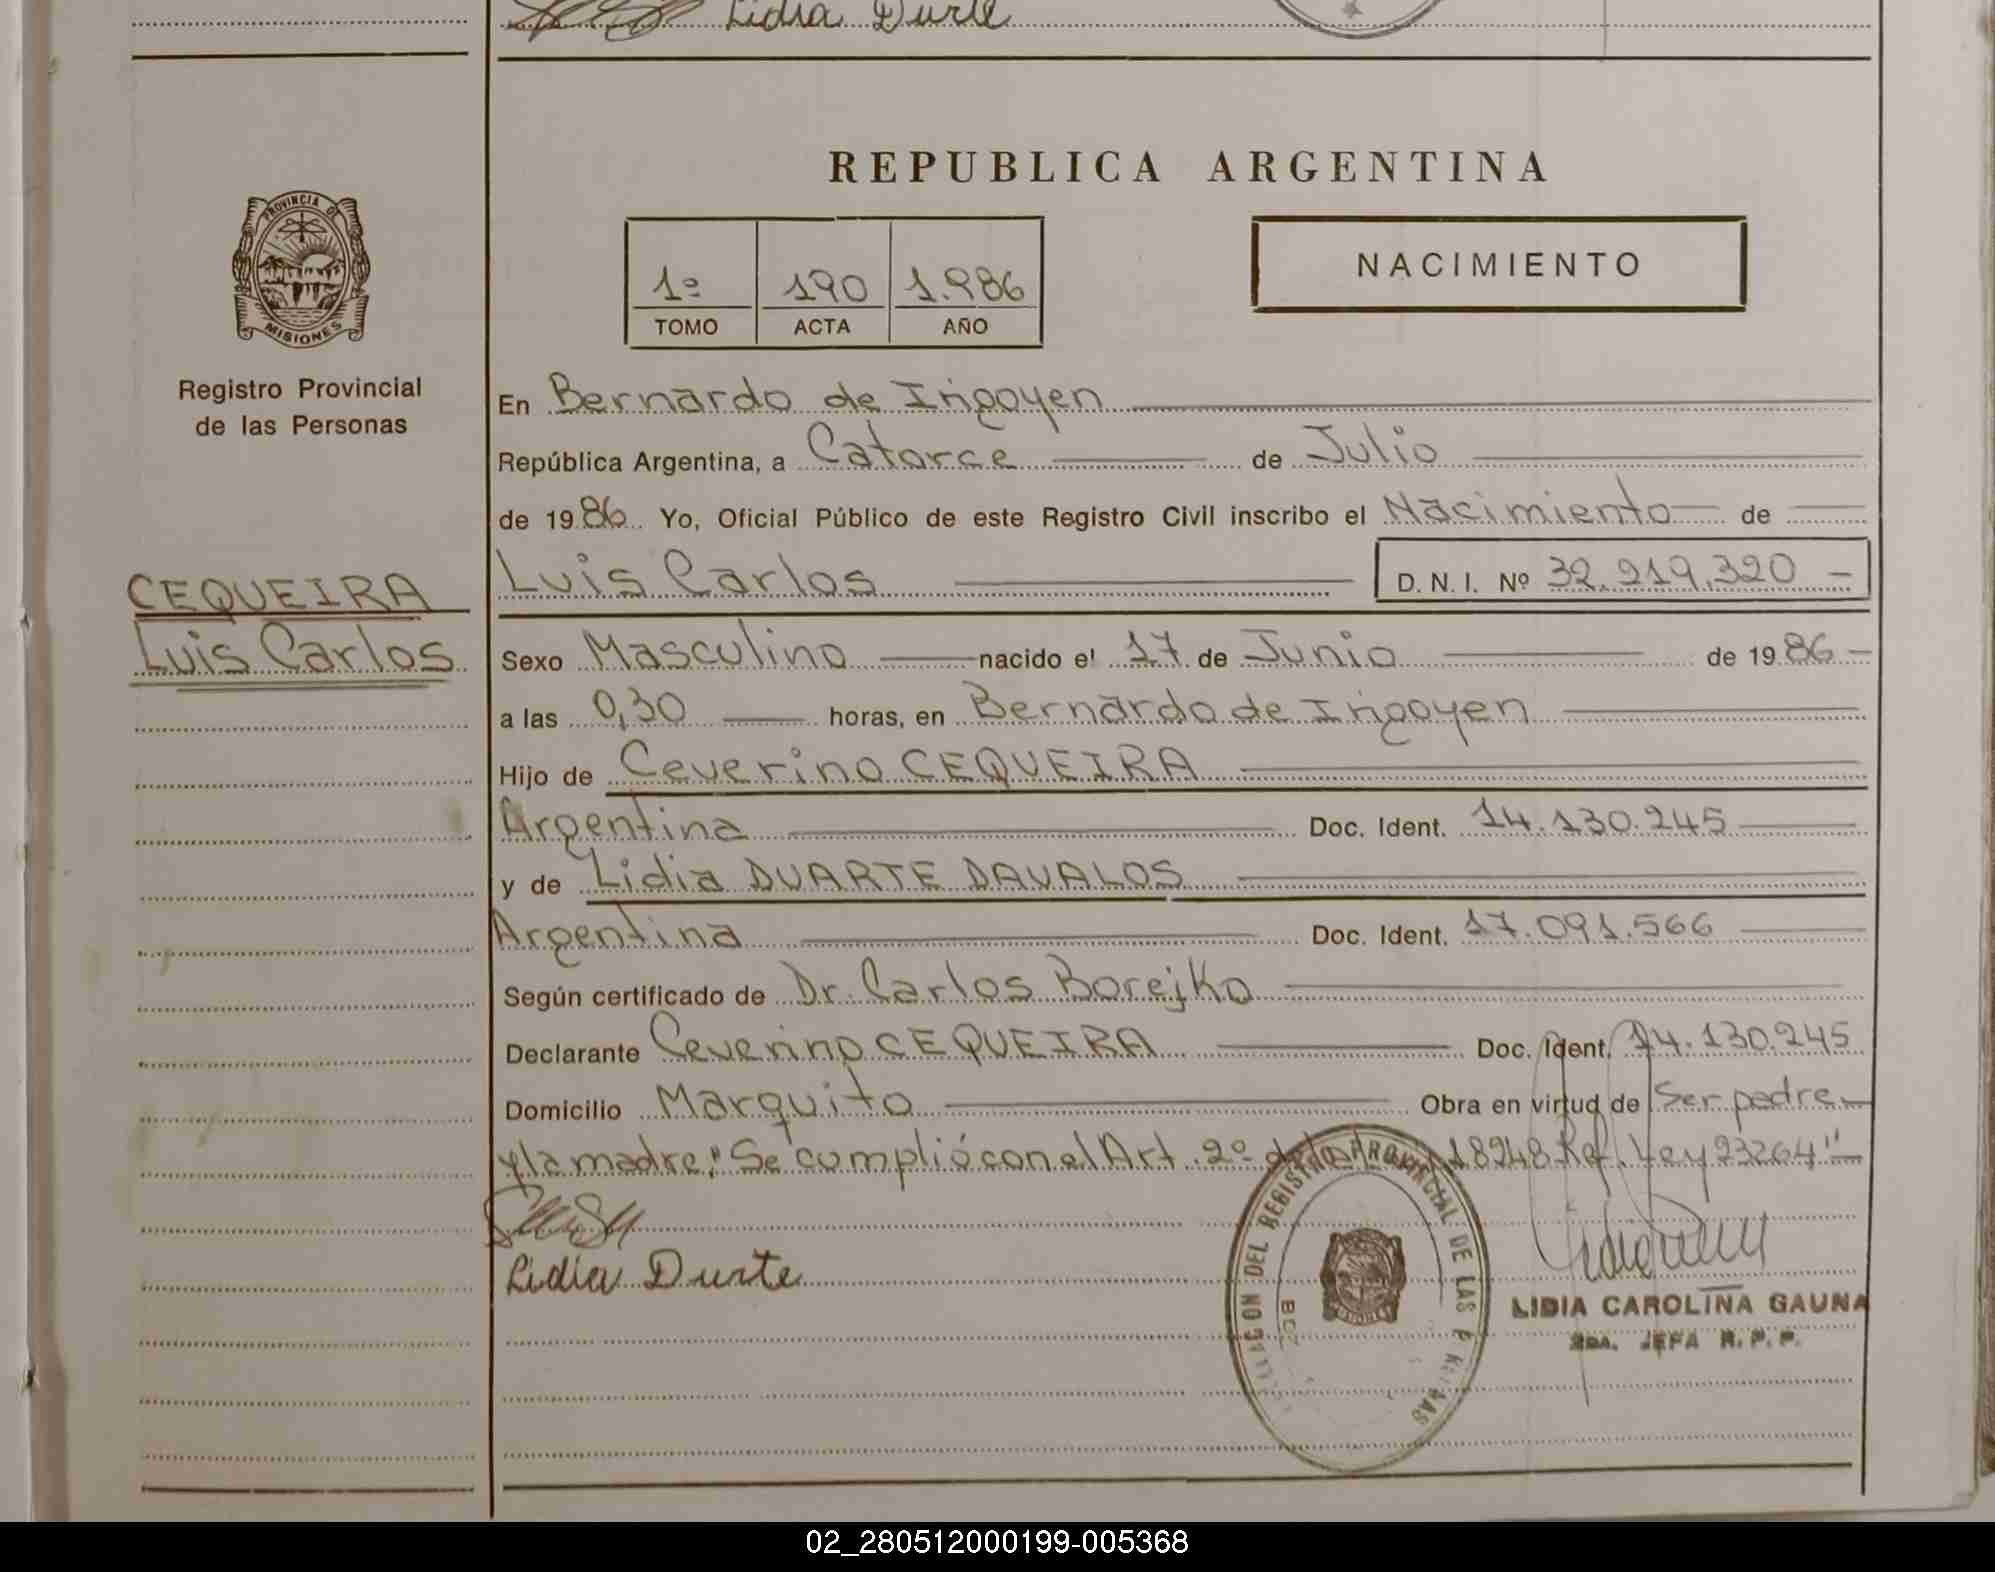 Lidia Durte
REPUBLICA ARGENTINA
PROVINCIA DE
MISIONES
Registro Provincial
de las Personas
1º 190 1.986
TOMO ACTA AÑO
NACIMIENTO
En Bernardo de Irigoyen
República Argentina, a Catorce de Julio
de 1986 Yo, Oficial Público de este Registro Civil inscribo el Nacimiento de
CEQUEIRA
Luis Carlos
Luis Carlos D. N. I. Nº 32.219.320 -
Sexo Masculino nacido el 17 de Junio de 1986 -
a las 0,30 horas, en Bernardo de Irigoyen
Hijo de Ceverino CEQUEIRA
Argentina Doc. Ident. 14.130.245
y de Lidia DUARTE DAVALOS
Argentina Doc. Ident. 17.091.566
Según certificado de Dr. Carlos Borejko
Declarante Ceverino CEQUEIRA Doc. Ident. 14.130.245
Domicilio Marquito Obra en virtud de Ser padre
y la madre, "Se cumplió con el Art. 2º de la 18248 Ref. Ley 23264"
Lidia Durte
DEL REGISTRO PROVINCIAL DE LAS
LIDIA CAROLINA GAUNA
2DA. JEFA R. P. P.
02_280512000199-005368